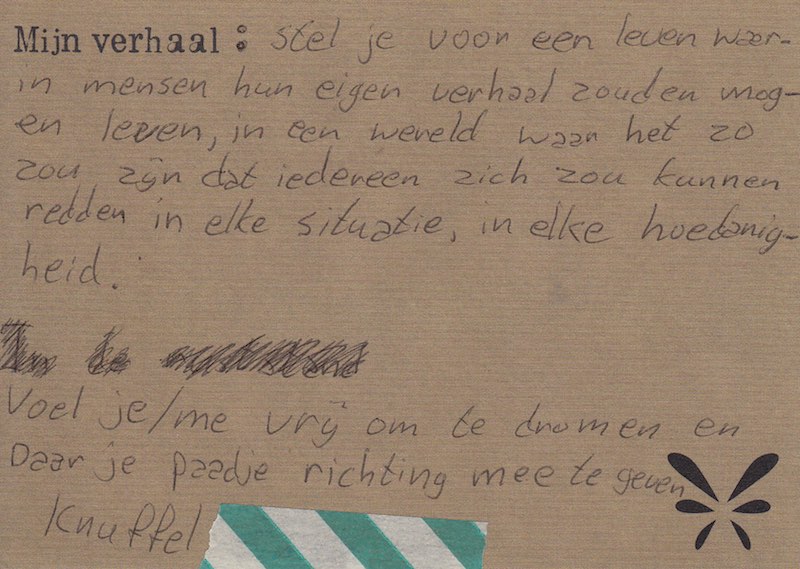 Mijn verhaal : Stel je voor een leven waar-
in mensen hun eigen verhaal zouden mog-
en leven, in een wereld waar het zo
zou zijn dat iedereen zich zou kunnen
redden in elke situatie, in elke hoedanig-
heid.
Voel je/me vrij om te dromen en
Daar je paadje richting mee te geven
Knuffel